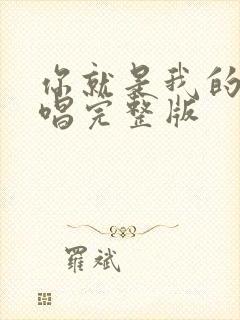 你就是我的
唱完整版
羅斌